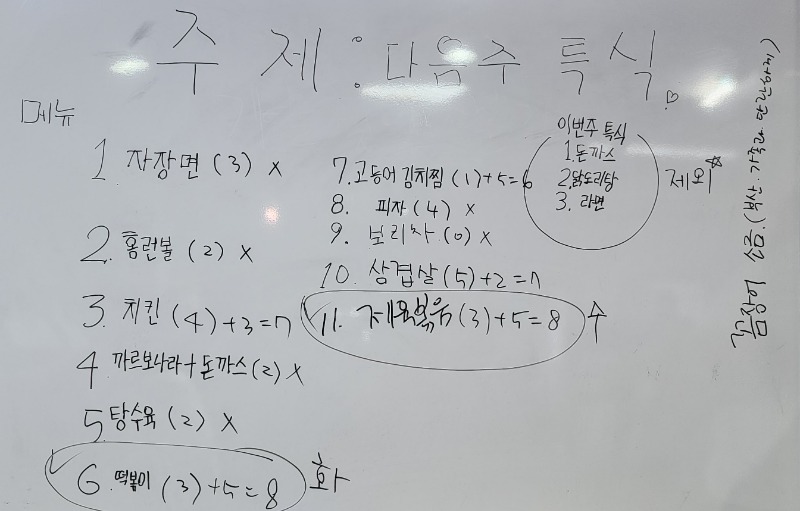 주 제 : 다음주 특식
메뉴
1 자장면 (3) x
2. 홈런볼 (2) x
3. 치킨 (4) +3=7
4 까르보나라+돈까스 (2) x
5 탕수육 (2) x
6. 떡볶이 (3) +5=8 화
7. 고등어 김치찜 (1) +5=6
8. 피자 (4) x
9. 보리차 (0) x
10. 삼겹살 (5) +2=7
11. 제육볶음 (3) +5=8 수
이번주 특식
1. 돈까스
2. 닭도리탕
3. 라면
제외
꼼장어 소금. (부산. 가족과 단란하게)